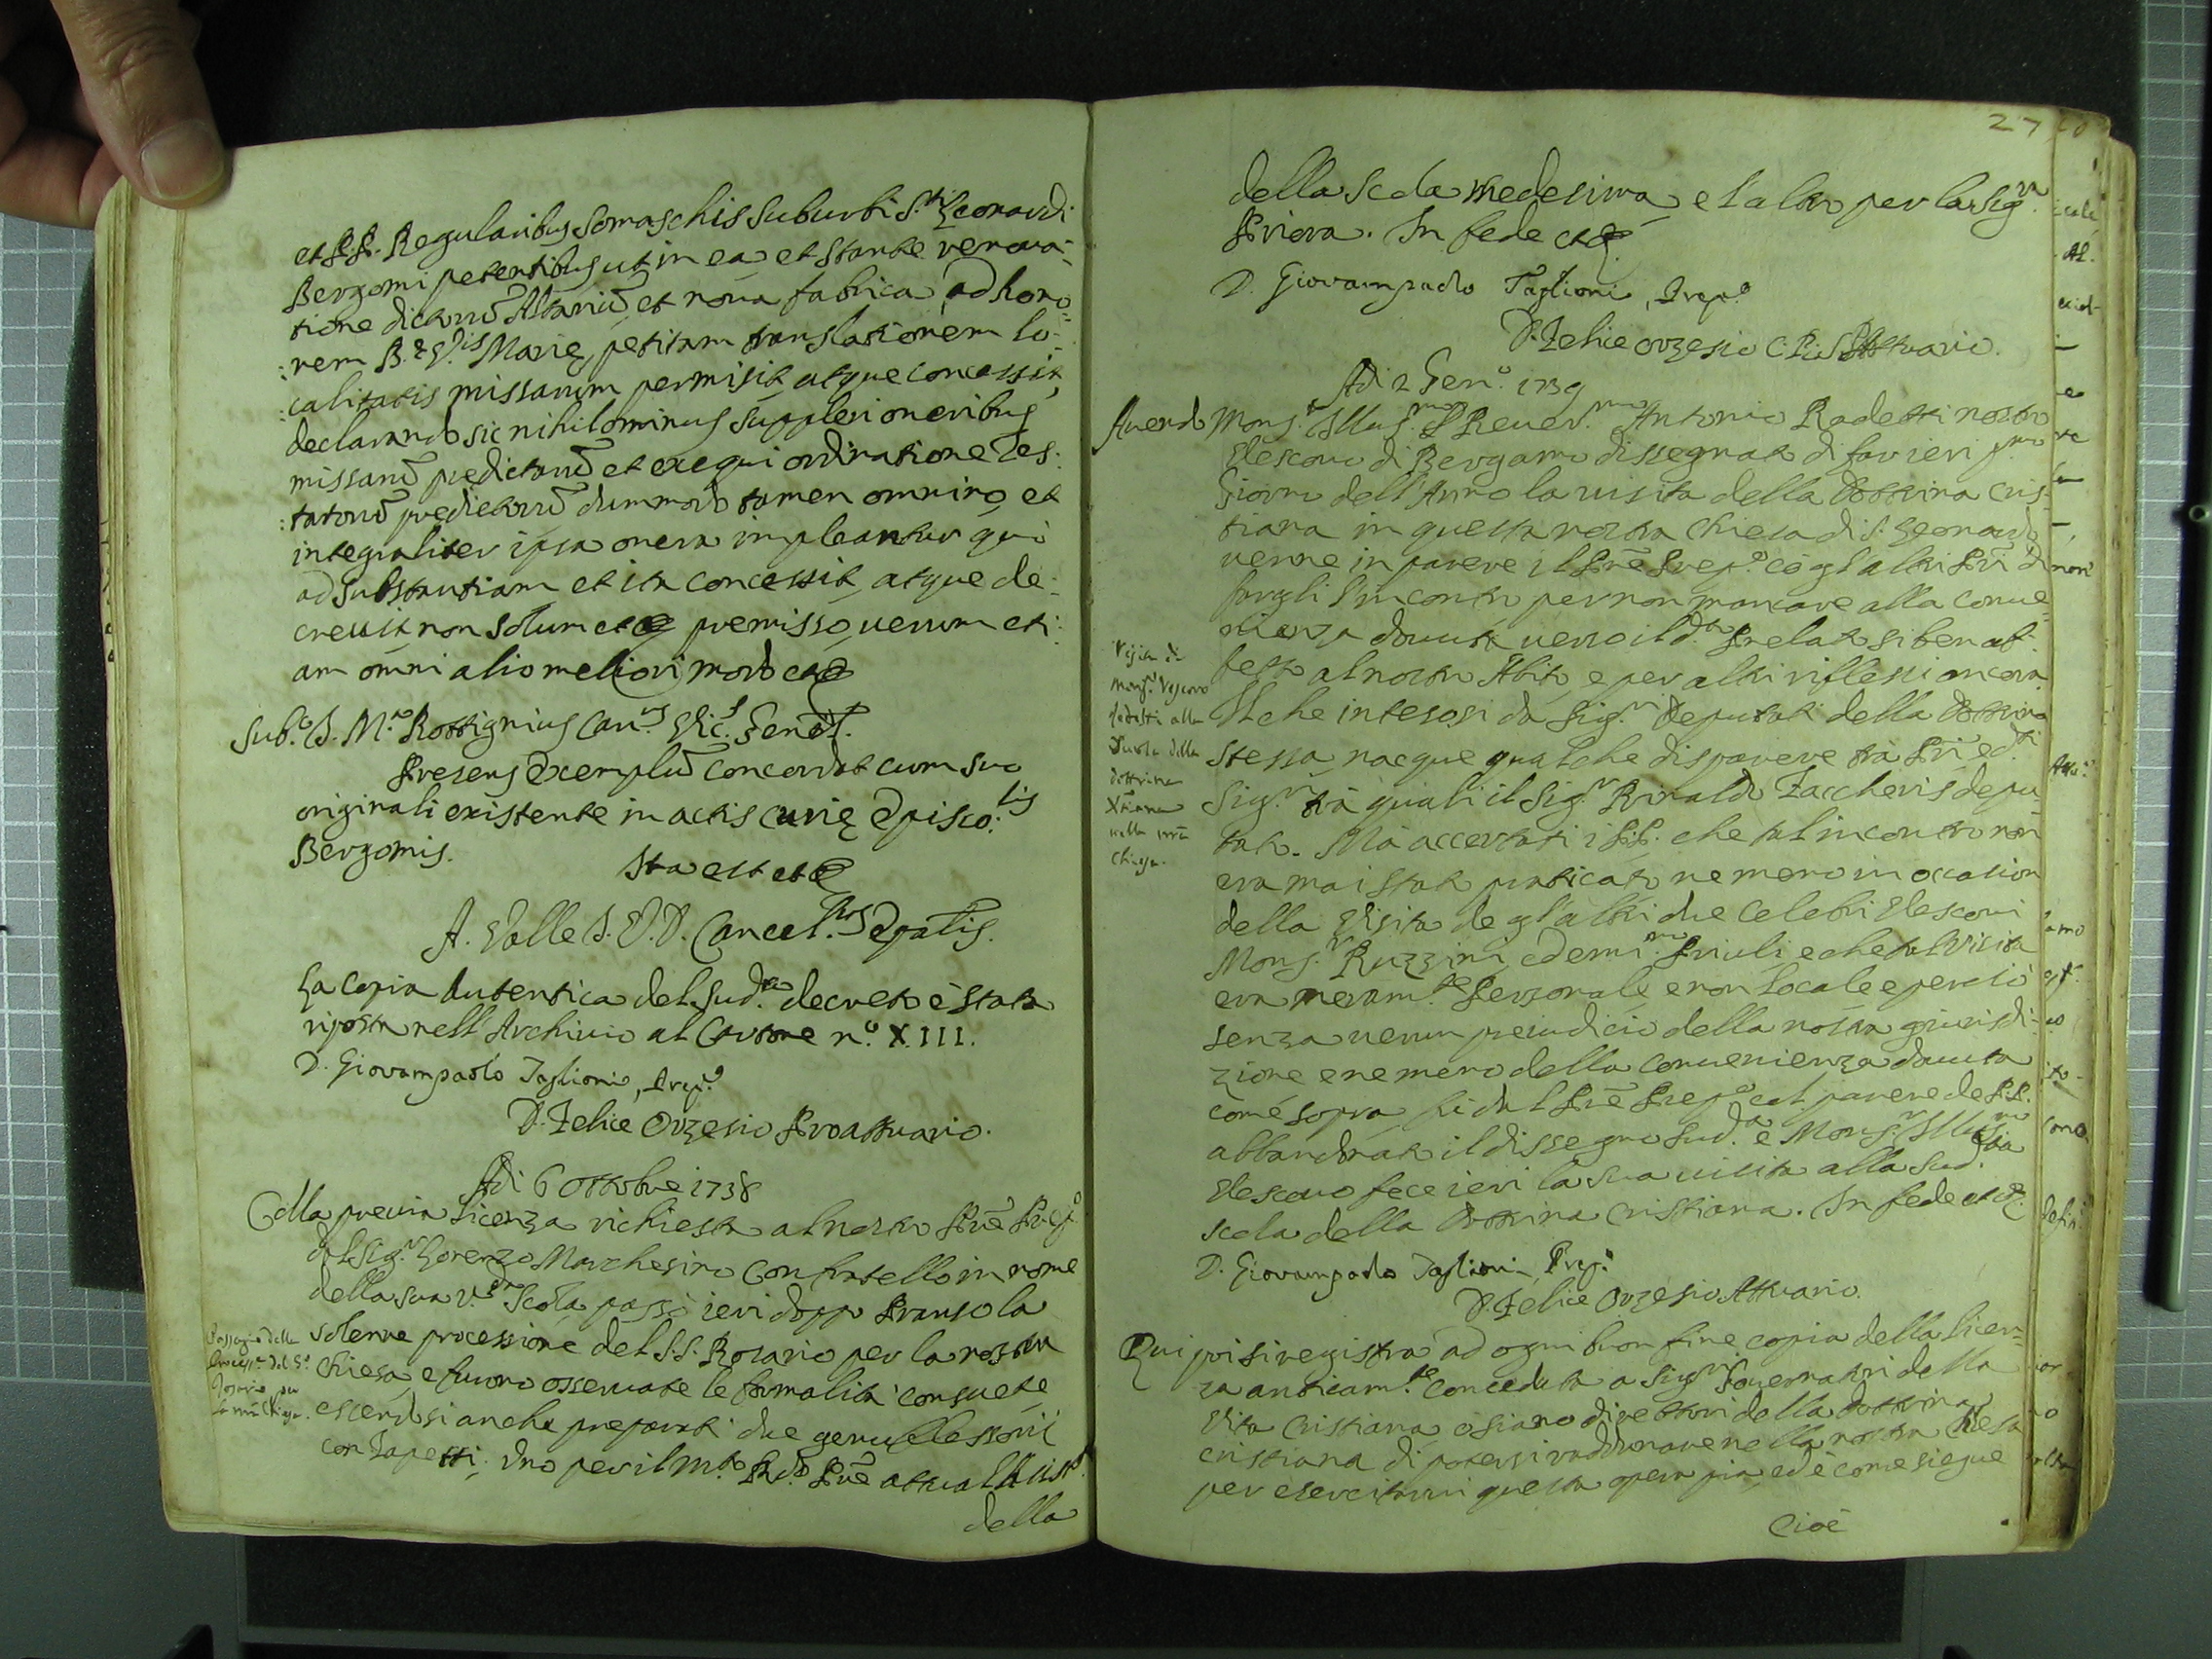 et P.P. Regularibus Somaschis Suburbi S.ti Leonardi
Bergomi petentibus ut in ea et stante renova-
tione dictorū Altariū, et nova fabrica ad hono-
:rem B. V.is Marię, petitam translationem lo-
:calitatis missarum permisit, atque concessit,
declarando sic nihilominus suppleri oneribus
missarū predictarū et exequi ordinatione Tes:
:tatorū prędictorū dummodo tamen omnino, et
integraliter ipsa onera impleantur qui
ad substantiam et ita concessit, atque de-
crevit non solum et premisso, verum eti:
am omni alio meliori modo etc
Sub.o J. M.a Rossignius Can.us Vic.s Gen.
Presens exemplū concordat cum suo
originali existente in actis curię Episco:lis
Bergomis.
Ita est etc
A. Valle J. V. D. Cancel.rius Epalis.
La copia autentica del Sud.o decreto è stata
riposta nell'Archivio al Cartone n.o XIII.
D. Giovampaolo Taglioni, Prep.o
D. Felice Orzesio Proattuario.
Adì 6 Ottobre 1738
Colla previa licenza richiesta al nostro Prē Prep.o
dal Sig.r Lorenzo Marchesino Confratello in nome
della sua V.da Scola, passò ieri doppo Pranso la
solenne processione del S.S. Rosario per la nostra
Chiesa, e furono osservate le formalità consuete,
essendosi anche preparati due genuflessorii
con Tapetti. Uno per il M.to Rdo. Prē attual Minist.o
della
Passagio della
Process.e del S.o
Rosario per
la nrā Chiesa.
27
della Scola medesima, e l'altro per la Sig.ra
Priora. In fede etc.
D. Giovampaolo Taglioni, Prep.o
D. Felice Orzesio C.R.S. Attuario.
Adì 2 Gen.o 1739
Avendo Mons.r Illus.mo e Rever.mo Antonio Radetti nostro
Vescovo di Bergamo dissegnato di far ieri p.mo
Giorno dell'Anno la visita della Dottrina Cris-
tiana in questa nostra Chiesa di S. Leonardo
venne in parere il Prē Prep.o cō gl'altri Pri di
fargli l'incontro per non mancare alla conve-
nienza dovuta verso il d.to Prelato si ben af-
fetto al nostro Abito, e per altri riflessi ancora
Il che intesosi da Sig.ri Deputati della Dottrina
stessa, nacque qualche disparere tra Pri e d.ti
Sig.ri trà quali il Sig.r Rinaldo Zaccheris depu-
tato. Mà accertati i P.P. che tal incontro non
era mai stato praticato, ne meno in occasion
della Visita de gl'altri due celebri Vescovi
Mons.r Ruzzini, ed emi.mo Priuli, e che tal Visita
era meram.te Personale, e non Locale e perciò
senza verun preiudicio della nostra giurisdi-
zione e ne meno della convenienza dovuta
come sopra, fù dal Prē Prep.o col parere de P.P.
abbandonato il dissegno sud.o e Mons.r Illus.mo
Vescovo fece ieri la sua visita alla Sud.ta
scola della Dottrina Cristiana. In fede etc.
D. Giovampaolo Taglioni Prep.o
D. Felice Orzesio Attuario.
Visita di
Mons.r Vescovo
Radetti alla
Scola della
dottrina
Xtiana
nella nrā
Chiesa.
Qui poi si registra ad ogni buon fine copia della licen-
za anticam.te conceduta a Sig.ri Governatori della
Vita Cristiana, o siano direttori della dottrina
cristiana di potersi raddunare nella nostra Chiesa
per esercitarvi questa opera pia, ed è come siegue
Cioè